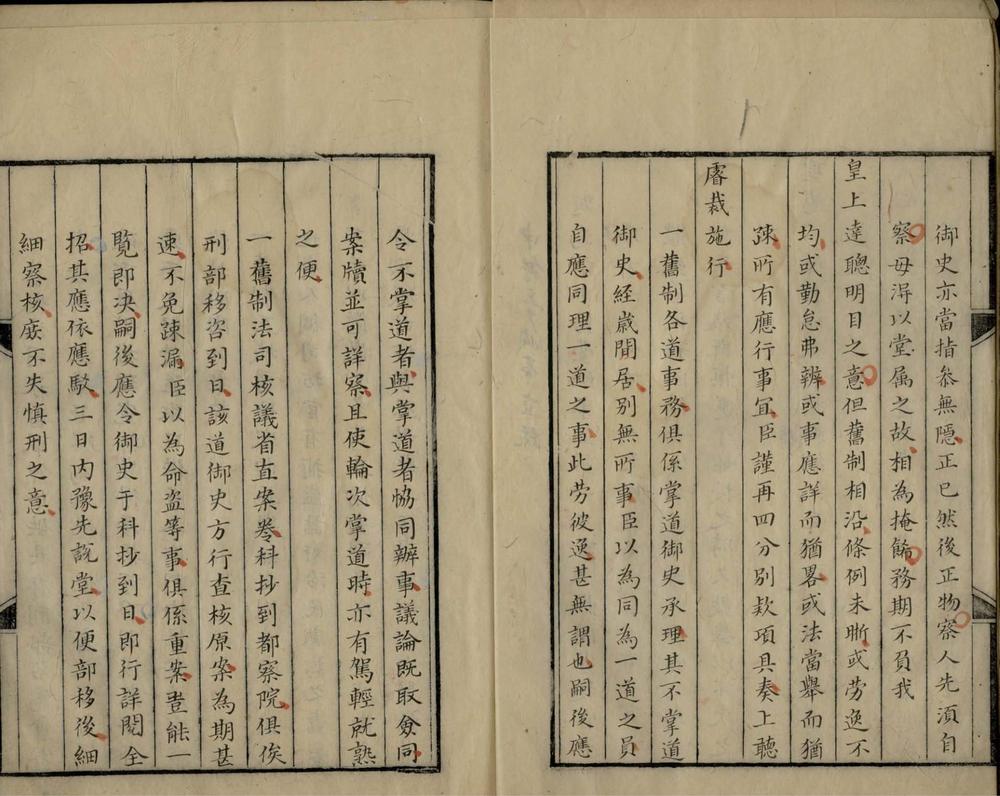 御史亦當指叅無隱正已然後正物察人先湏自
察毋淂以堂属之故相為掩飾務期不負我
皇上達聰明目之意但舊制相沿條例未晰或劳逸不
均或勤怠弗辨或事應詳而猶畧或法當舉而猶
踈所有應行事冝臣謹再四分別欵項具奏上聽
睿裁施行
一舊制各道事務俱係掌道御史承理其不掌道
御史経歲閒居別無所事臣以為同為一道之員
自應同理一道之事此劳彼逸甚無謂也嗣後應
令不掌道者與掌道者恊同辦事議論既取僉同
案牘並可詳察且使輪次掌道時亦有駕輕就熟
之便
一舊制法司核議省直案卷科抄到都察院俱俟
刑部移咨到日該道御史方行查核原案為期甚
速不免踈漏臣以為命盜等事俱係重案豈能一
覧即决嗣後應令御史于科抄到日即行詳閱全
招其應依應駁三日内豫先説堂以便部移後細
細察核庻不失慎刑之意